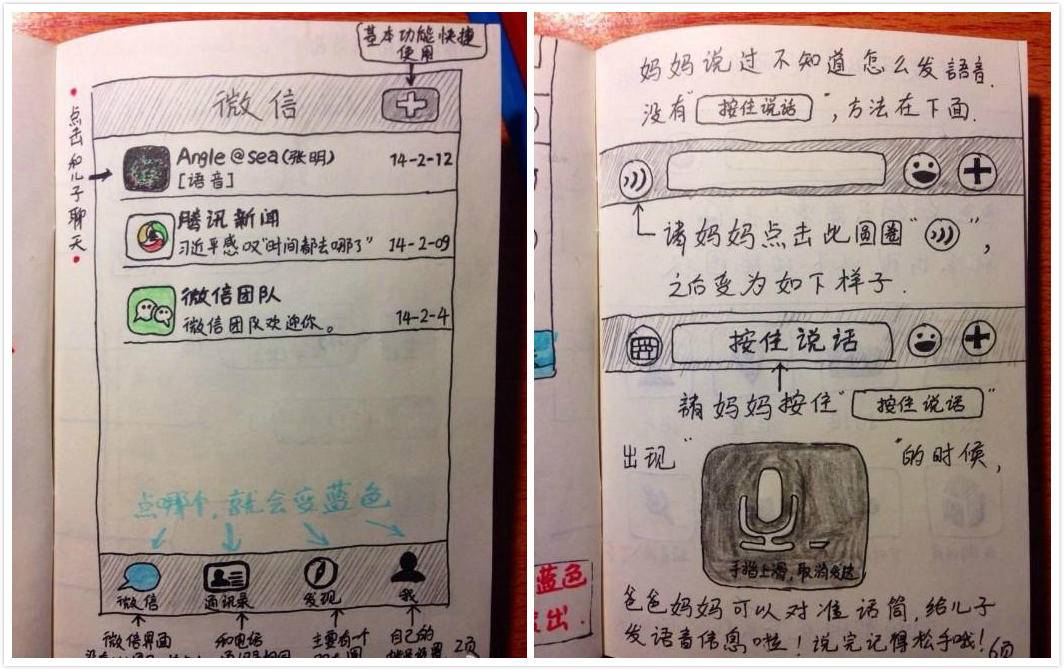 基本功能快捷
使用
微信
点击和儿子聊天
Angle@sea(张明) 14-2-12
[语音]
腾讯新闻
习近平感叹"时间都去哪了" 14-2-09
微信团队
微信团队欢迎你。 14-2-4
点哪个,就会变蓝色
微信 通讯录 发现 我
微信界面 和电话 主要有一个 自己的
2页
妈妈说过不知道怎么发語音.
没有"按住说话",方法在下面.
请妈妈点击此圆圈" ",
之后变为如下样子.
按住说话
請妈妈按住"按住说话"
出现" "的时候,
手指上滑,取消发送
爸爸妈妈可以对准话筒,给儿子
发语音信息啦!说完记得松手哦!
6页
蓝色
出.